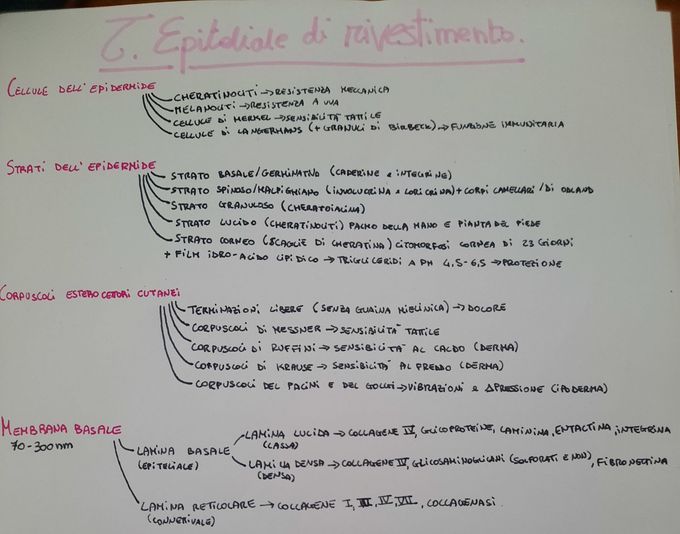 T. Epiteliale di rivestimento.
CELLULE DELL'EPIDERMIDE
CHERATINOCITI → RESISTENZA MECCANICA
MELANOCITI → RESISTENZA A UVA
CELLULE DI MERKEL → SENSIBILITÀ TATTILE
CELLULE DI LANGERHANS (+ GRANULI DI BIRBECK) → FUNZIONE IMMUNITARIA
STRATI DELL'EPIDERMIDE
STRATO BASALE/GERMINATIVO (CADERINE E INTEGRINE)
STRATO SPINOSO/MALPIGHIANO (INVOLUCRINA E LORICRINA) + CORPI LAMELLARI/DI ODLAND
STRATO GRANULOSO (CHERATOIALINA)
STRATO LUCIDO (CHERATINOCITI) PALMO DELLA MANO E PIANTA DEL PIEDE
STRATO CORNEO (SCAGLIE DI CHERATINA) CITOMORFOSI CORNEA DI 23 GIORNI
+ FILM IDRO-ACIDO LIPIDICO → TRIGLICERIDI A PH 4,5-6,5 → PROTEZIONE
CORPUSCOLI ESTEROCETTORI CUTANEI
TERMINAZIONI LIBERE (SENZA GUAINA MIELINICA) → DOLORE
CORPUSCOLI DI MESSNER → SENSIBILITÀ TATTILE
CORPUSCOLI DI RUFFINI → SENSIBILITÀ AL CALDO (DERMA)
CORPUSCOLI DI KRAUSE → SENSIBILITÀ AL FREDDO (DERMA)
CORPUSCOLI DEL PACINI E DEL GOLGI → VIBRAZIONI E ΔPRESSIONE (IPODERMA)
MEMBRANA BASALE
70-300nm
LAMINA BASALE
(EPITELIALE)
LAMINA LUCIDA → COLLAGENE IV, GLICOPROTEINE, LAMININA, ENTACTINA, INTEGRINA
(LASSA)
LAMINA DENSA → COLLAGENE IV, GLICOSAMINOGLICANI (SOLFORATI E NON), FIBRONECTINA
(DENSA)
LAMINA RETICOLARE → COLLAGENE I, III, IV, VII, COLLAGENASI
(CONNETTIVALE)